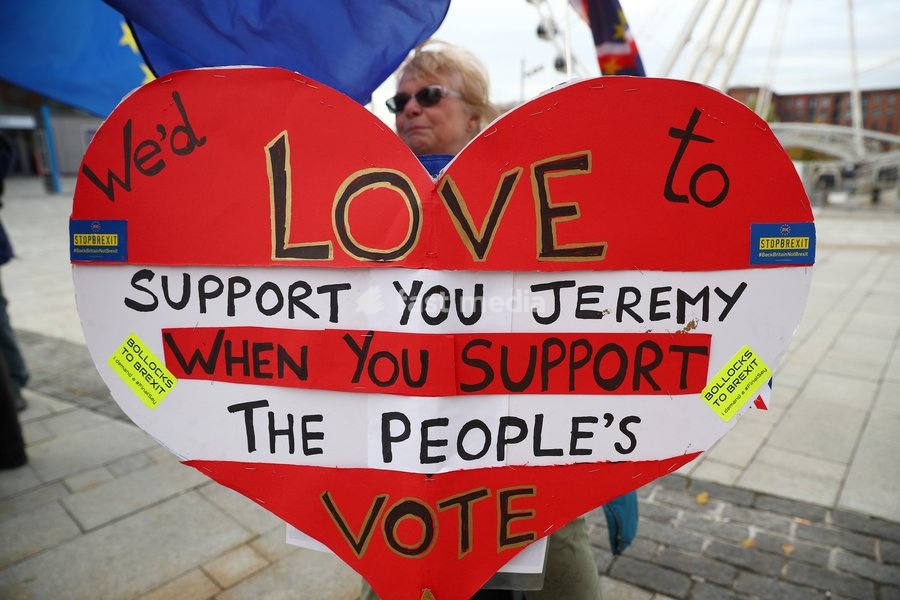 We'd LOVE to
SUPPORT YOU JEREMY
WHEN YOU SUPPORT
THE PEOPLE'S
VOTE
STOPBREXIT
#BackBritainNotBrexit
STOPBREXIT
#BackBritainNotBrexit
BOLLOCKS
TO BREXIT
I demand a #FinalSay
BOLLOCKS
TO BREXIT
I demand a #FinalSay
fast media